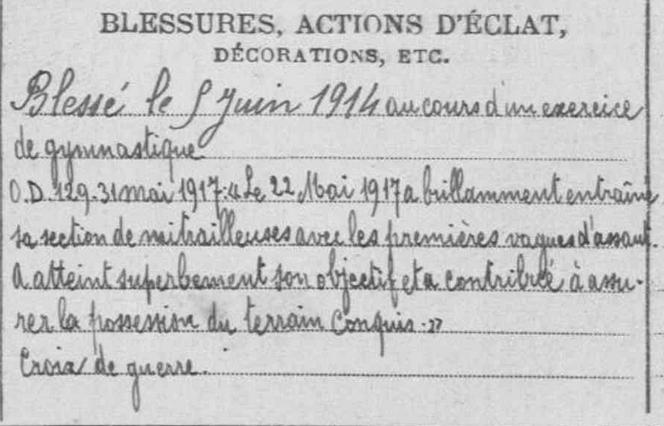 BLESSURES, ACTIONS D'ÉCLAT,
DÉCORATIONS, ETC.
Blessé le 5 Juin 1914 au cours d'un exercice
de gymnastique
O.D. 129. 31 mai 1917: "Le 22 Mai 1917 a brillamment entraîné
sa section de mitrailleuses avec les premières vagues d'assaut.
A atteint superbement son objectif et a contribué à assu-
rer la possession du terrain conquis."
Croix de guerre.